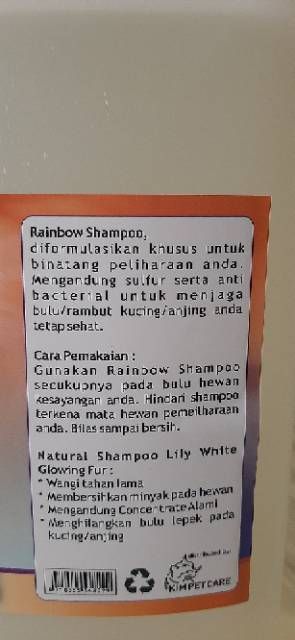 Rainbow Shampoo,
diformulasikan khusus untuk
binatang peliharaan anda.
Mengandung sulfur serta anti
bacterial untuk menjaga
bulu/rambut kucing/anjing anda
tetap sehat.
Cara Pemakaian :
Gunakan Rainbow Shampoo
secukupnya pada bulu hewan
kesayangan anda. Hindari shampoo
terkena mata hewan pemeilharaan
anda. Bilas sampai bersih.
Natural Shampoo Lily White
Glowing Fur :
* Wangi tahan lama
* Membersihkan minyak pada hewan
* Mengandung Concentrate Alami
* Menghilangkan bulu lepek pada
kucing/anjing
KIM PET CARE